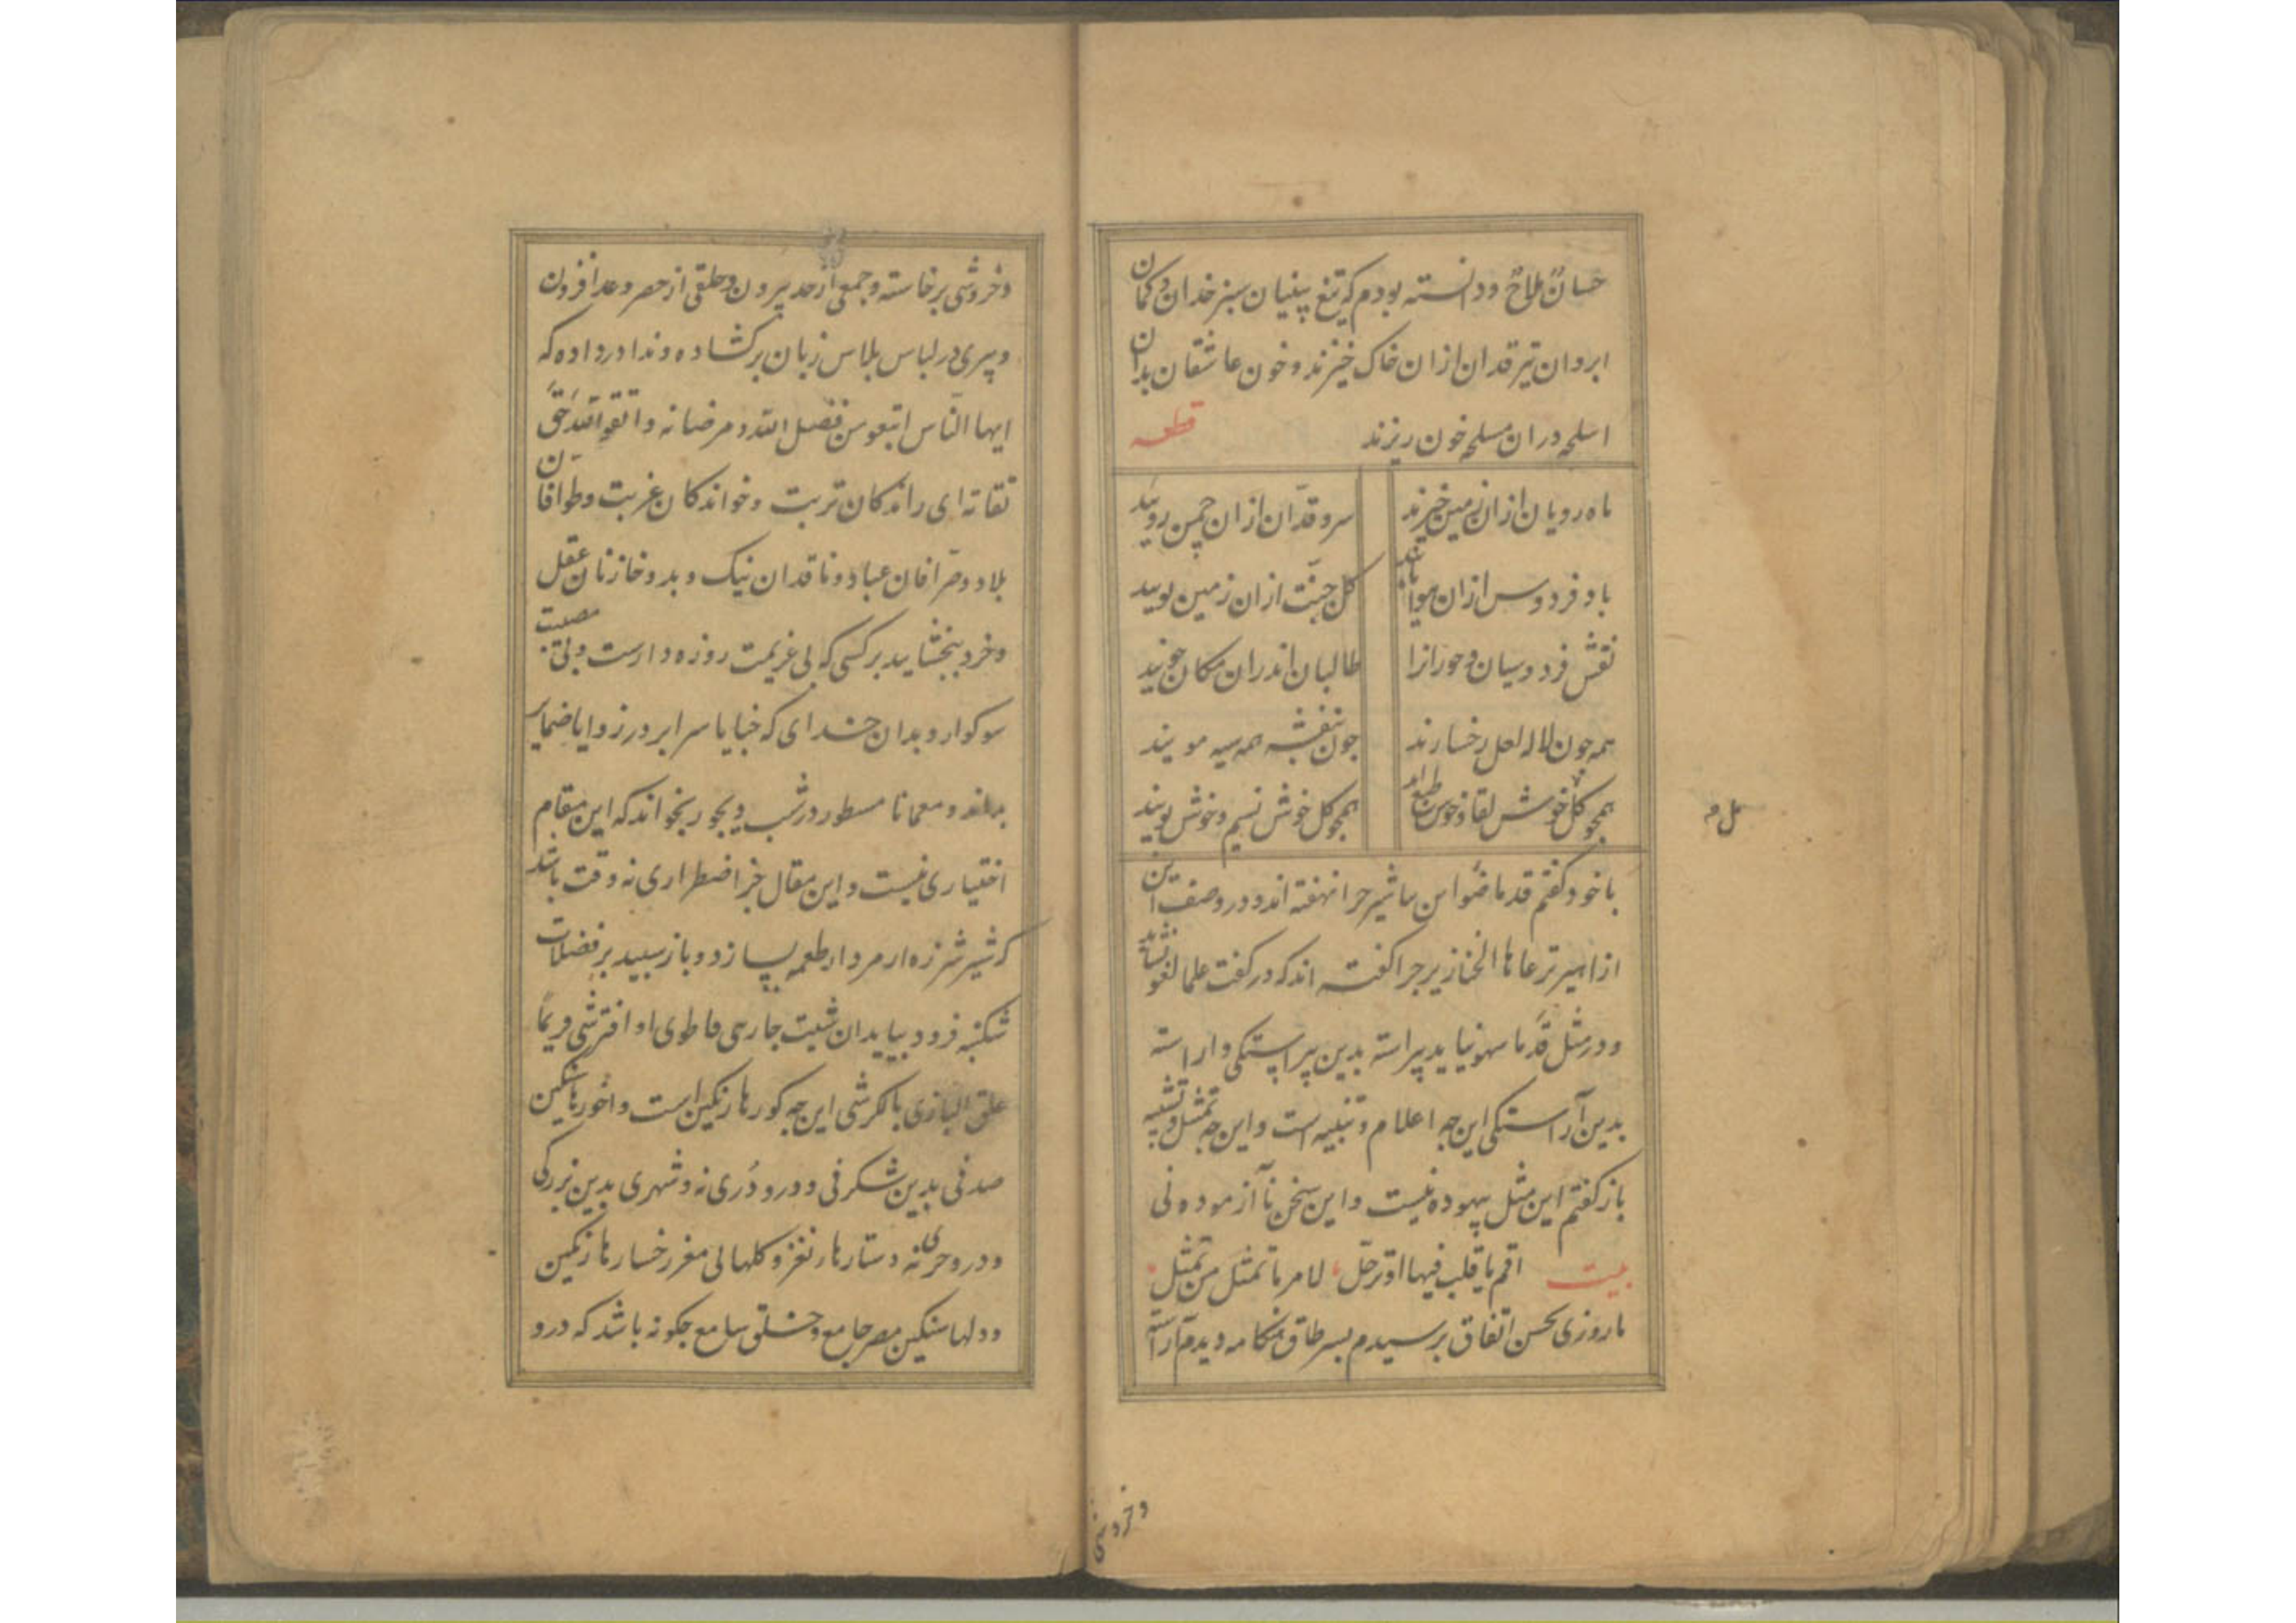 حسانٌ ملاحٌ ودانسته بودم که تیغ پینیان سبز خدان و کمان
ابروان تیر قدان ازان خاک خیزند و خون عاشقان بدان
اسلحه دران مسلحه خون ریزند قطعه
ماه رویان ازان زمین خیزند سرو قدّان ازان چمن رویند
باد فردوس ازان هوا یابند کل جنّت ازان زمین بویند
نقش فردوسیان و حورانرا طالبان اندران مکان جویند
همه چون لاله لعل رخسارند جون بنفشه همه سیه مویند
همجو کل خوش لقا و خوش همجو کل خوش نسیم و خوش بویند
با خود کفتم قدماضوا این سا شیر جرا نهفته اند و در وصف این
از اسیر ترعاها الخنازیر جرا کفته اند که در کفت علما لغو نشاید
و در مثل قدما سهو نیاید پیراسته بدین پیراستکی و اراسته
بدین آراستکی این جه اعلام و تنبیه است و این جه تمثل و تشبیه
باز کفتم این مثل بیهوده نیست و این سخن نآآزموده نی
بیت اقم یا قلب فیها او ترحّل لامر ما تمثل من تمثل
تا روزی بحسن اتفاق برسیدم بسر طاق هنکامه دیدم آراسته
مل م
وخروشی
وخروشی برخاسته و جمعی از حد بیرون و حلقی از حصر و عد افزون
و پیری در لباس پلاس زبان برکشاده و ندا در داده که
ایها النّاس ابتغوا من فضل الله و مرضاته و اتقوا الله حَقَّ
تقاته ای راندکان تربت و خواندکان غربت و طوافان
بلاد و صرّافان عباد و ناقدان نیک و بد و خازنان عقل
و خرد ببخشایید بر کسی که بی عزیمت روزه دارست و بی مصیبت
سوکوار و بدان خدای که خبایا سرایر در زوایا ضمایر
بداند و معمانا مسطور در شب دیجور بخواند که این مقام
اختیاری نیست و این مقال جز اضطراری نه وقت باشد
که شیر شرزه از مردار طعمه سازد و باز سپید بر فضلات
شکنبه فرود بیاید ان شیت جارحی فاطوی او افترشی فربمّا
علق البازی بالکرشی این جه کورها رنکین است و اخورها سنکین
صدفی بدین شکرفی و درو دُری نه و شهری بدین بزرکی
و درو حری نه دستارها نغز و کلها بی مغز رخسارها رنکین
و دلها سنکین مصر جامع و خلق سامع جکونه باشد که درو